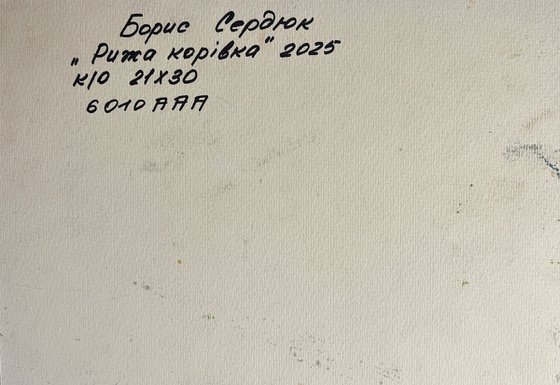 Борис Сердюк
„Рижа корівка" 2025
к/о 21х30
6010ААА